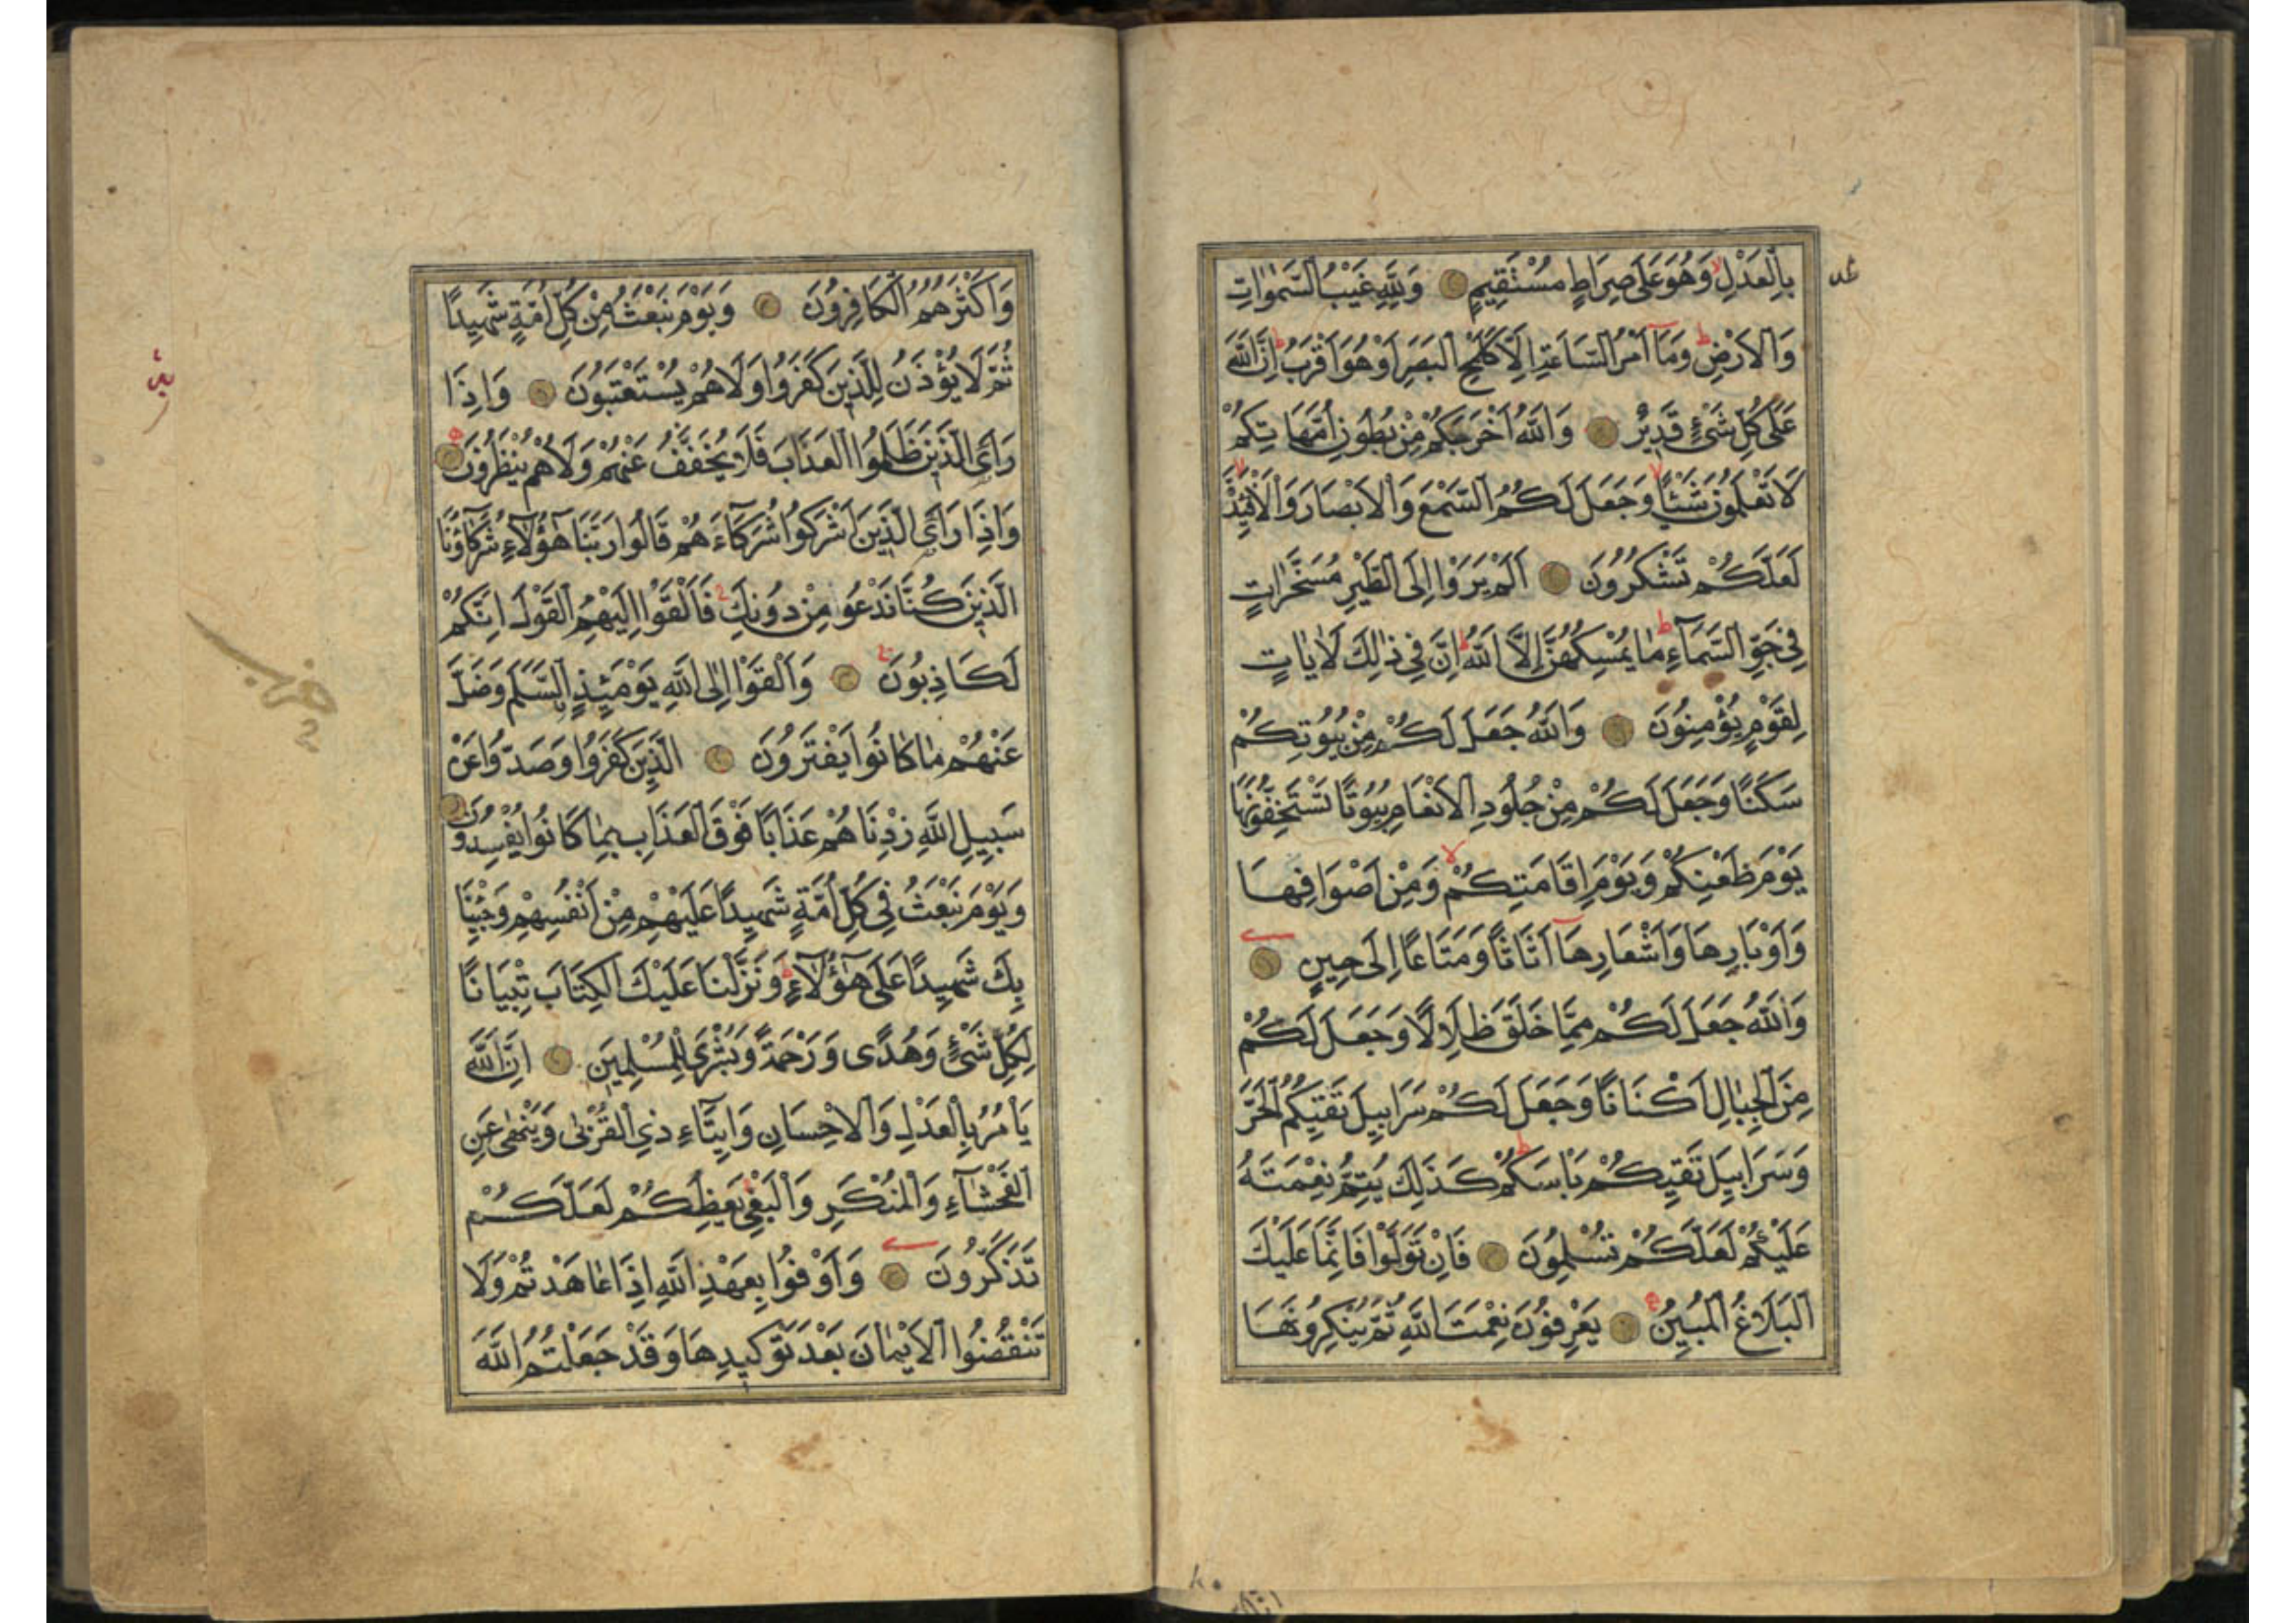 بِالْعَدْلِ وَهُوَ عَلَى صِرَاطٍ مُسْتَقِيمٍ وَلِلَّهِ غَيْبُ السَّمٰوَاتِ
وَالْاَرْضِ وَمَآ اَمْرُ السَّاعَةِ اِلَّا كَلَمْحِ الْبَصَرِ اَوْ هُوَ اَقْرَبُ اِنَّ اللّٰهَ
عَلَى كُلِّ شَىْءٍ قَدِيرٌ وَاللّٰهُ اَخْرَجَكُمْ مِنْ بُطُونِ اُمَّهَاتِكُمْ
لَا تَعْلَمُونَ شَيْئًا وَجَعَلَ لَكُمُ السَّمْعَ وَالْاَبْصَارَ وَالْاَفْئِدَةَ
لَعَلَّكُمْ تَشْكُرُونَ اَلَمْ يَرَوْا اِلَى الطَّيْرِ مُسَخَّرَاتٍ
فِى جَوِّ السَّمَآءِ مَا يُمْسِكُهُنَّ اِلَّا اللّٰهُ اِنَّ فِى ذٰلِكَ لَاٰيَاتٍ
لِقَوْمٍ يُؤْمِنُونَ وَاللّٰهُ جَعَلَ لَكُمْ مِنْ بُيُوتِكُمْ
سَكَنًا وَجَعَلَ لَكُمْ مِنْ جُلُودِ الْاَنْعَامِ بُيُوتًا تَسْتَخِفُّونَهَا
يَوْمَ ظَعْنِكُمْ وَيَوْمَ اِقَامَتِكُمْ وَمِنْ اَصْوَافِهَا
وَاَوْبَارِهَا وَاَشْعَارِهَآ اَثَاثًا وَمَتَاعًا اِلَى حِينٍ
وَاللّٰهُ جَعَلَ لَكُمْ مِمَّا خَلَقَ ظِلَالًا وَجَعَلَ لَكُمْ
مِنَ الْجِبَالِ اَكْنَانًا وَجَعَلَ لَكُمْ سَرَابِيلَ تَقِيكُمُ الْحَرَّ
وَسَرَابِيلَ تَقِيكُمْ بَاْسَكُمْ كَذٰلِكَ يُتِمُّ نِعْمَتَهُ
عَلَيْكُمْ لَعَلَّكُمْ تُسْلِمُونَ فَاِنْ تَوَلَّوْا فَاِنَّمَا عَلَيْكَ
الْبَلَاغُ الْمُبِينُ يَعْرِفُونَ نِعْمَتَ اللّٰهِ ثُمَّ يُنْكِرُونَهَا
وَاَكْثَرُهُمُ الْكَافِرُونَ وَيَوْمَ نَبْعَثُ مِنْ كُلِّ اُمَّةٍ شَهِيدًا
ثُمَّ لَا يُؤْذَنُ لِلَّذِينَ كَفَرُوا وَلَا هُمْ يُسْتَعْتَبُونَ وَاِذَا
رَاَى الَّذِينَ ظَلَمُوا الْعَذَابَ فَلَا يُخَفَّفُ عَنْهُمْ وَلَا هُمْ يُنْظَرُونَ
وَاِذَا رَاَى الَّذِينَ اَشْرَكُوا شُرَكَآءَهُمْ قَالُوا رَبَّنَا هٰٓؤُلَآءِ شُرَكَآؤُنَا
الَّذِينَ كُنَّا نَدْعُو مِنْ دُونِكَ فَاَلْقَوْا اِلَيْهِمُ الْقَوْلَ اِنَّكُمْ
لَكَاذِبُونَ وَاَلْقَوْا اِلَى اللّٰهِ يَوْمَئِذٍ السَّلَمَ وَضَلَّ
عَنْهُمْ مَا كَانُوا يَفْتَرُونَ الَّذِينَ كَفَرُوا وَصَدُّوا عَنْ
سَبِيلِ اللّٰهِ زِدْنَاهُمْ عَذَابًا فَوْقَ الْعَذَابِ بِمَا كَانُوا يُفْسِدُونَ
وَيَوْمَ نَبْعَثُ فِى كُلِّ اُمَّةٍ شَهِيدًا عَلَيْهِمْ مِنْ اَنْفُسِهِمْ وَجِئْنَا
بِكَ شَهِيدًا عَلَى هٰٓؤُلَآءِ وَنَزَّلْنَا عَلَيْكَ الْكِتَابَ تِبْيَانًا
لِكُلِّ شَىْءٍ وَهُدًى وَرَحْمَةً وَبُشْرَى لِلْمُسْلِمِينَ اِنَّ اللّٰهَ
يَاْمُرُ بِالْعَدْلِ وَالْاِحْسَانِ وَاِيتَآءِ ذِى الْقُرْبٰى وَيَنْهٰى عَنِ
الْفَحْشَآءِ وَالْمُنْكَرِ وَالْبَغْىِ يَعِظُكُمْ لَعَلَّكُمْ
تَذَكَّرُونَ وَاَوْفُوا بِعَهْدِ اللّٰهِ اِذَا عَاهَدْتُمْ وَلَا
تَنْقُضُوا الْاَيْمَانَ بَعْدَ تَوْكِيدِهَا وَقَدْ جَعَلْتُمُ اللّٰهَ
حزب